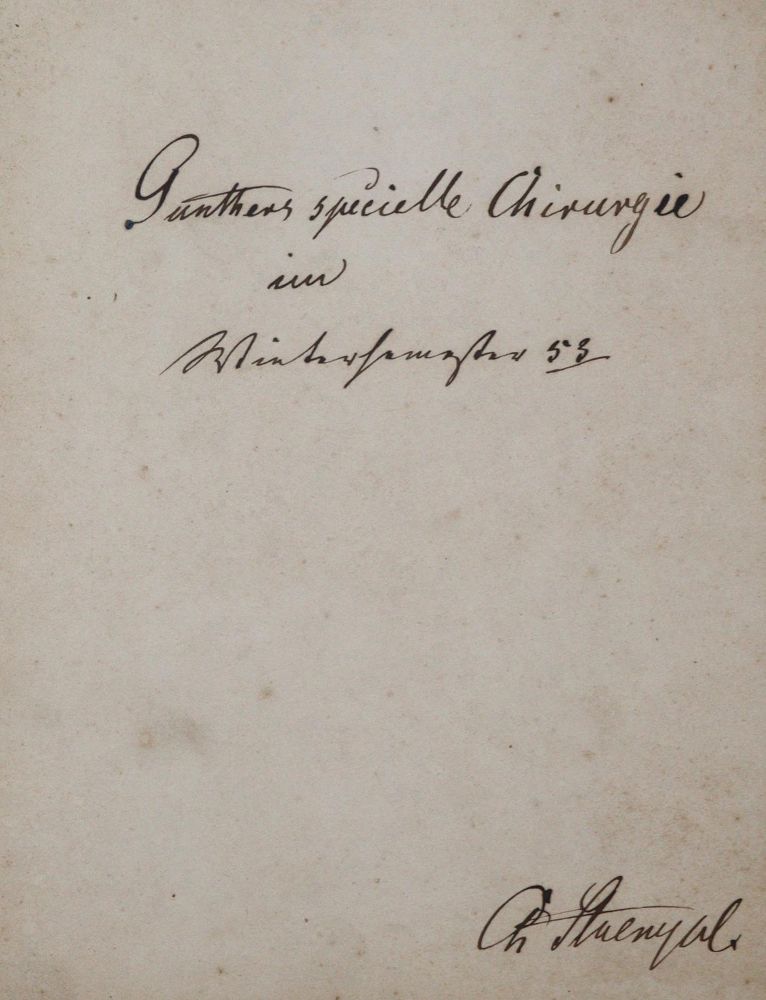 Günthers specielle Chirurgie
im
Wintersemester 53
Ch